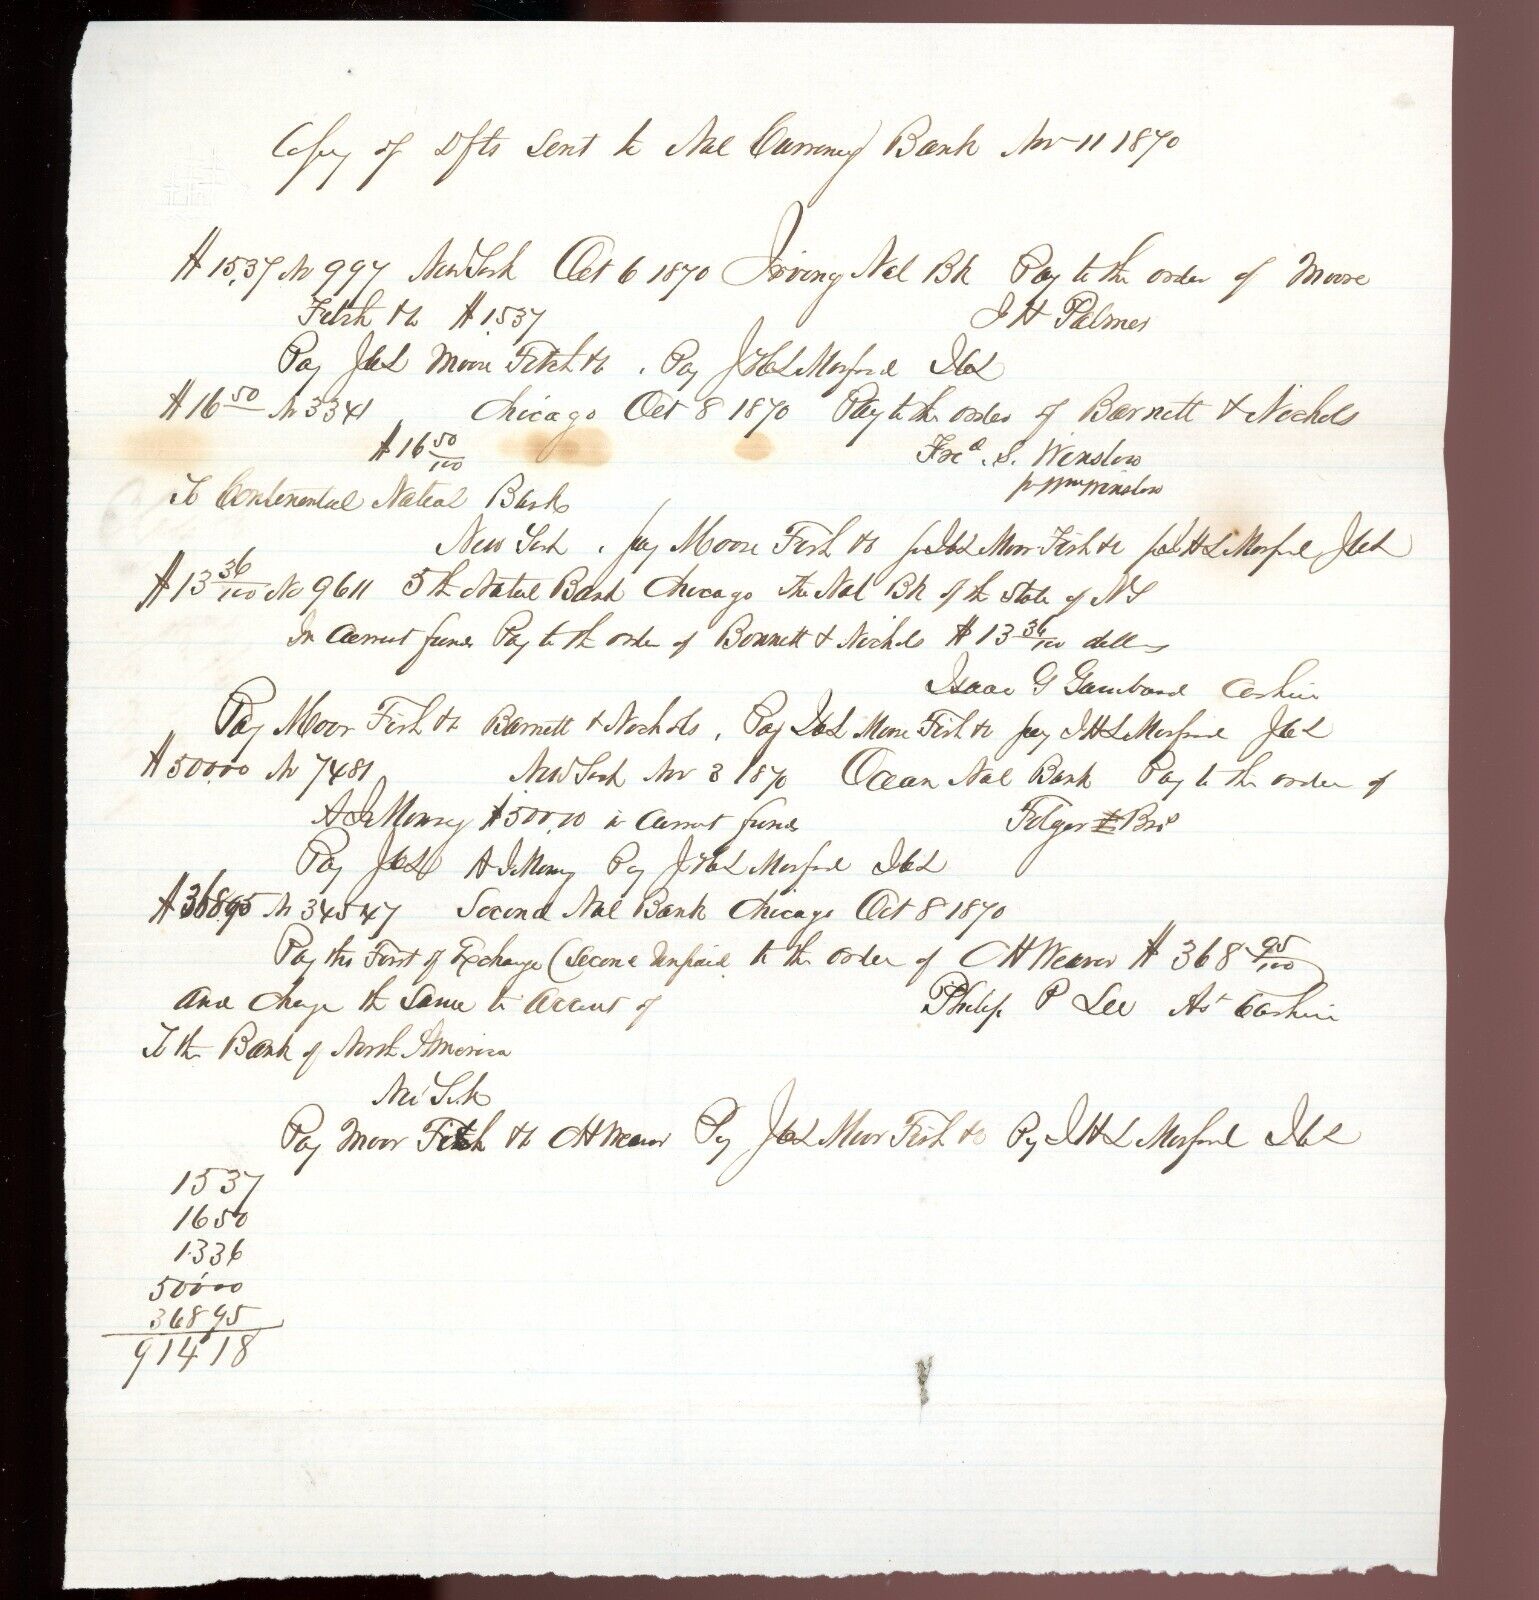 Copy of Dfts Sent to Nal Currency Bank Nov 11 1870
$15.37 No 997 New York Oct 6 1870 Irving Nal Bk Pay to the order of Moore
Fitch & Co $15.37 J H Palmer
Pay Moore Fitch & Co. Pay
$16 50 No 3341 Chicago Oct 8 1870 Pay to the order of Barnett & Nichols
$16 50/100 Fred. S. Winslow
pr Wm Winslow
To Continental Natial Bank
New York. pay Moore Fish & Co Moor Fish & Co
$13 36/100 No 9611 5th Natial Bank Chicago the Nal Bk of the State of NY
In Current funds Pay to the order of Bonnett & Nichols $13 36/100 dollars
Isaac G Cashier
Pay Moor Fish & Co Barnett & Nichols. Pay Moore Fish & Co pay
$500.00 No 7481 New York Nov 3 1870 Ocean Nal Bank Pay to the order of
$500.00 in Current funds Folger & Bro
Pay Pay
$36895 No 34547 Second Nal Bank Chicago Oct 8 1870
Pay this First of Exchange (Second Unpaid to the order of CH Weaver $368 95/100)
and charge the Same to Account of Philip P Lee Ast Cashier
To the Bank of North America
New York
Pay Moor Fitch & Co CH Weaver Py Moor Fish & Co Py
1537
1650
1336
50000
36895
91418